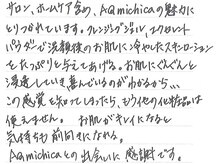 サロン、ホームケア含め、AQmichicaの魅力に
とりつかれています。クレンジングジェル、エクセレント
パウダーで洗顔後のお肌に冷やしたスキンローション
をたっぷりと与えてあげる。お肌にぐんぐんと
浸透していき喜んでいるのがわかるから…
この感覚を知ってしまったら、もう他の化粧品は
使えません。お肌がキレイになると
気持ちも前向きになれる。
AQmichicaとの出会いに感謝です。